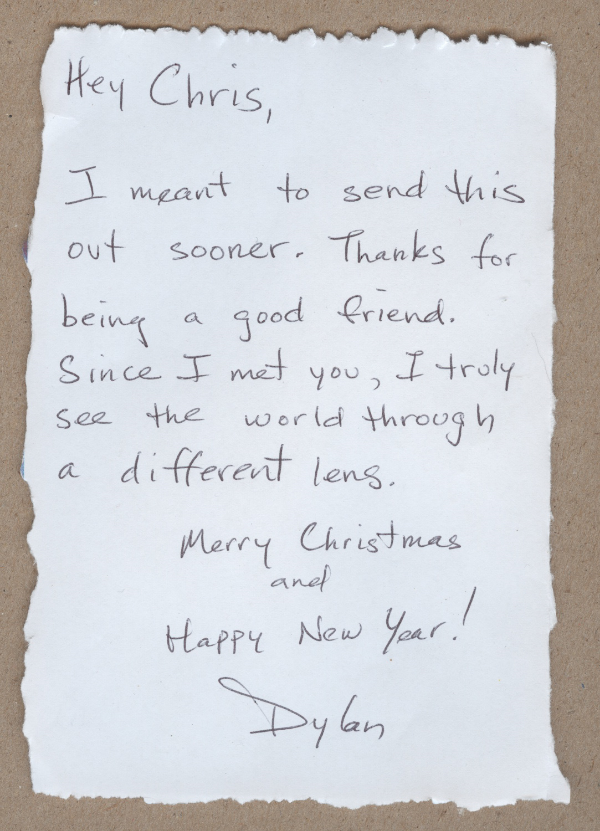 Hey Chris,
I meant to send this
out sooner. Thanks for
being a good friend.
Since I met you, I truly
see the world through
a different lens.
Merry Christmas
and
Happy New Year!
Dylan